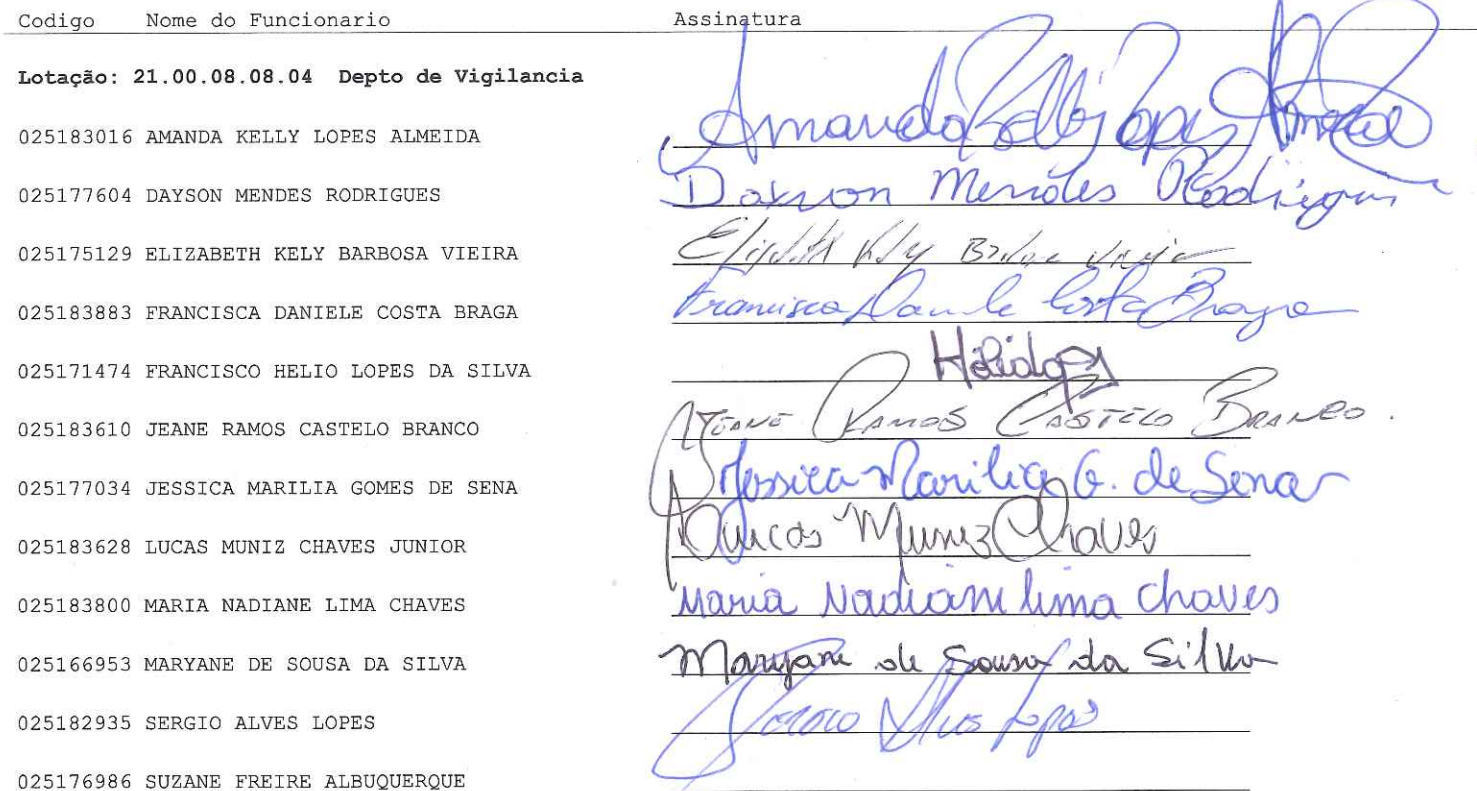 Codigo Nome do Funcionario Assinatura
Lotação: 21.00.08.08.04 Depto de Vigilancia
025183016 AMANDA KELLY LOPES ALMEIDA Amanda Kelly Lopes Almeida
025177604 DAYSON MENDES RODRIGUES Dayson Mendes Rodrigues
025175129 ELIZABETH KELY BARBOSA VIEIRA Kely
025183883 FRANCISCA DANIELE COSTA BRAGA Francisca Daniele Costa Braga
025171474 FRANCISCO HELIO LOPES DA SILVA
025183610 JEANE RAMOS CASTELO BRANCO JEANE RAMOS CASTELO BRANCO.
025177034 JESSICA MARILIA GOMES DE SENA Jessica Marilia G. de Sena
025183628 LUCAS MUNIZ CHAVES JUNIOR Lucas Muniz Chaves
025183800 MARIA NADIANE LIMA CHAVES Maria Nadiane lima Chaves
025166953 MARYANE DE SOUSA DA SILVA Maryane de Sousa da Silva
025182935 SERGIO ALVES LOPES Lopes
025176986 SUZANE FREIRE ALBUQUERQUE